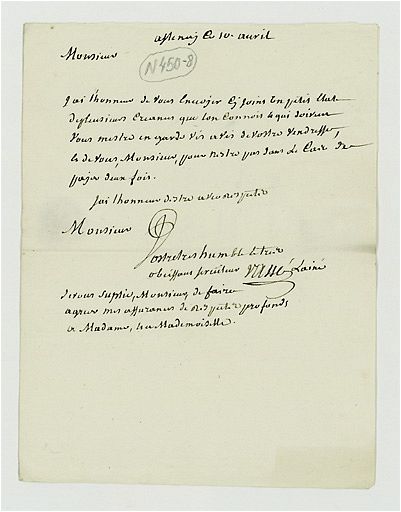 ce 10 avril
Monsieur
N450-8
J'ai l'honneur de vous envoyer cy joins un petit Etat
de plusieurs Creances que lon Connois & qui doivent
Vous mettre en garde vis a vis de vostre Vendresse,
& de vous, Monsieur, pour n'estre pas dans le Cas de
payer deux fois.
J'ai l'honneur destre avec respect
Monsieur
Vostre tres humble & tres
obeissans serviteur
Je vous suplie, Monsieur, de faire
agreer mes assurances de respects profonds
a Madame, & a Mademoiselle.